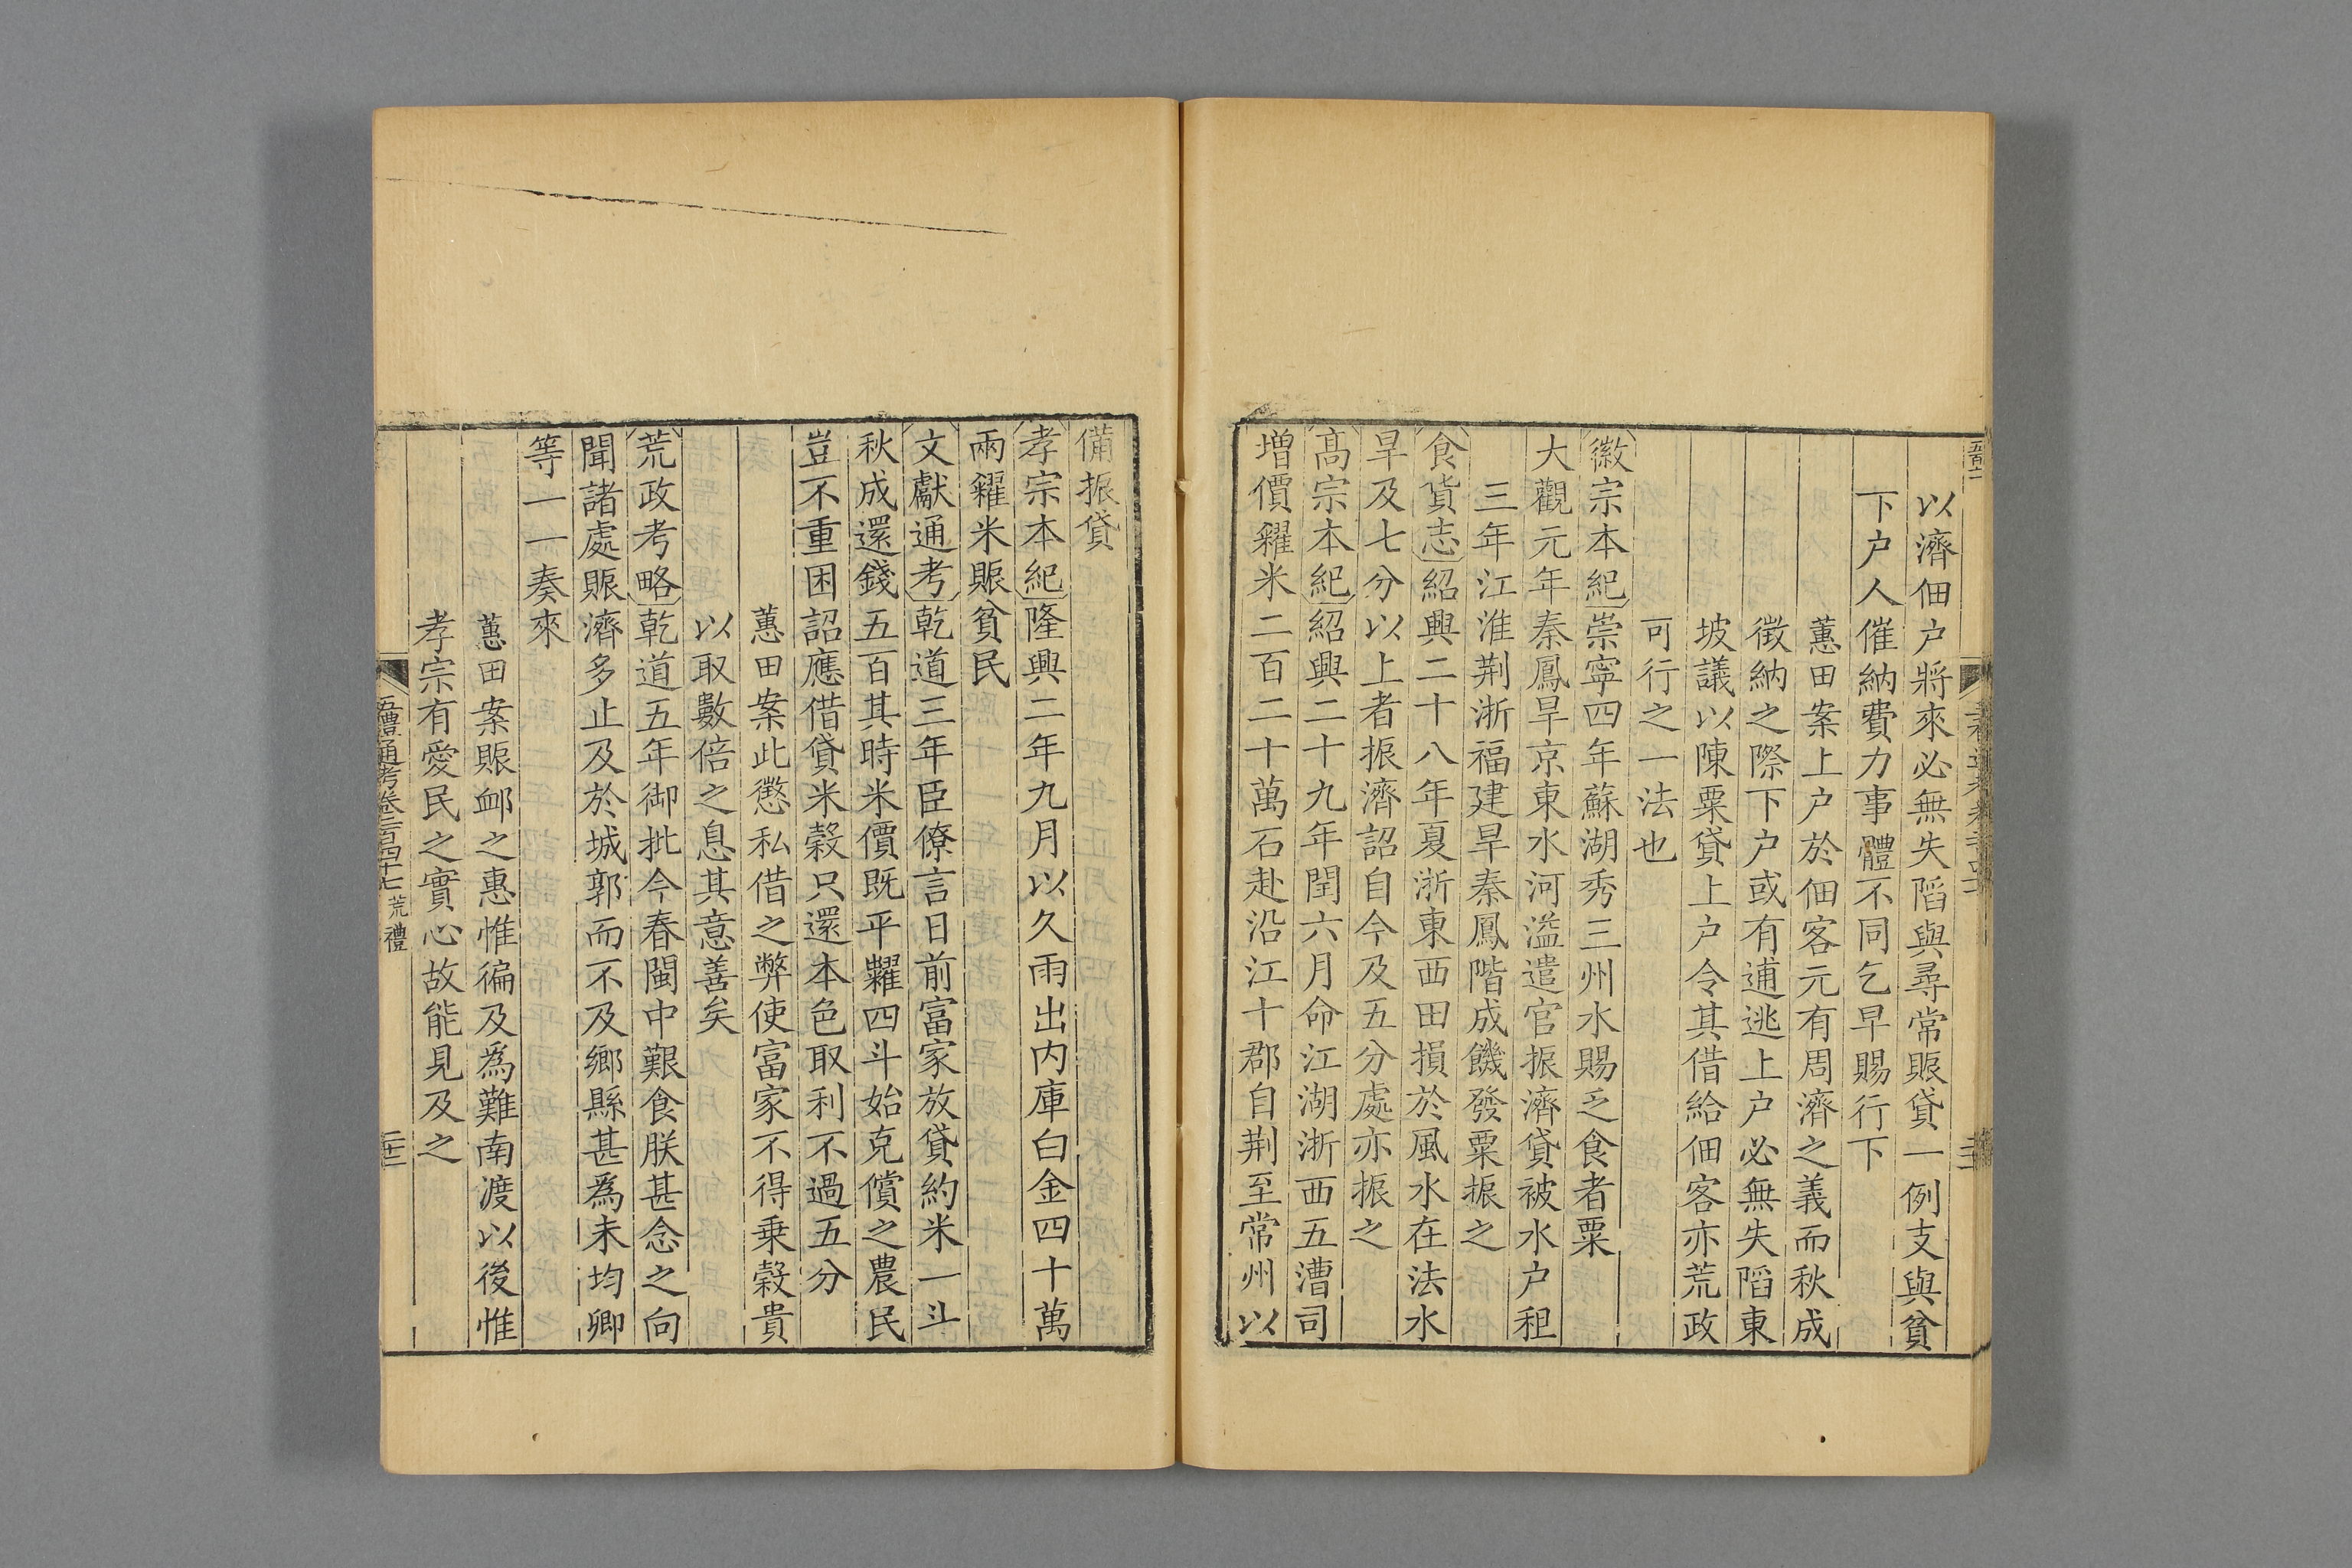 以濟佃户將來必無失陷與尋常賑貸一例支與貧
下户人催納費力事體不同乞早賜行下
蕙田案上户於佃客元有周濟之義而秋成
徵納之際下户或有逋逃上户必無失陷東
坡議以陳粟貸上户令其借給佃客亦荒政
可行之一法也
徽宗本紀崇寧四年蘇湖秀三州水賜乏食者粟
大觀元年秦鳳旱京東水河溢遣官振濟貸被水户租
三年江淮荆浙福建旱秦鳳階成饑發粟振之
食貨志紹興二十八年夏浙東西田損於風水在法水
旱及七分以上者振濟詔自今及五分處亦振之
髙宗本紀紹興二十九年閏六月命江湖浙西五漕司
增價糴米二百二十萬石赴沿江十郡自荆至常州以
備振貸
孝宗本紀隆興二年九月以久雨出内庫白金四十萬
兩糴米賑貧民
文獻通考乾道三年臣僚言日前富家放貸約米一斗
秋成還錢五百其時米價既平糶四斗始克償之農民
豈不重困詔應借貸米穀只還本色取利不過五分
蕙田案此懲私借之弊使富家不得乗穀貴
以取數倍之息其意善矣
荒政考略乾道五年御批今春閩中艱食朕甚念之向
聞諸處賑濟多止及於城郭而不及鄉縣甚爲未均卿
等一一奏來
蕙田案賑䘏之惠惟徧及爲難南渡以後惟
孝宗有愛民之實心故能見及之
五禮通考卷二百四十七 荒禮